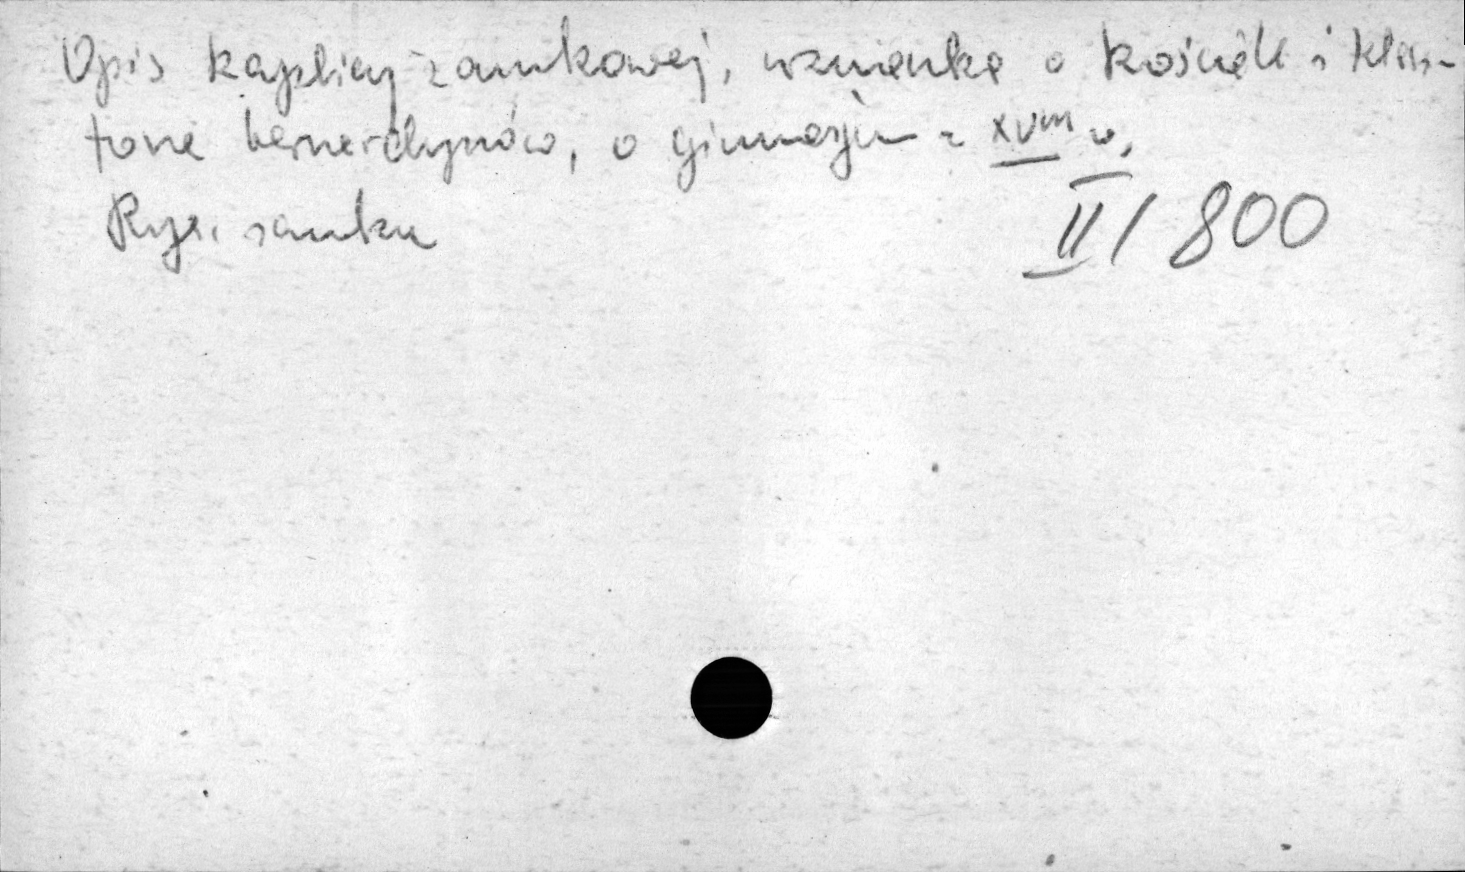 Opis kaplicy zamkowej, wzmianka o kościele i klasz-
torze bernardynów, o gimnazjum z XVIII w.
Rys. zamku
II/800